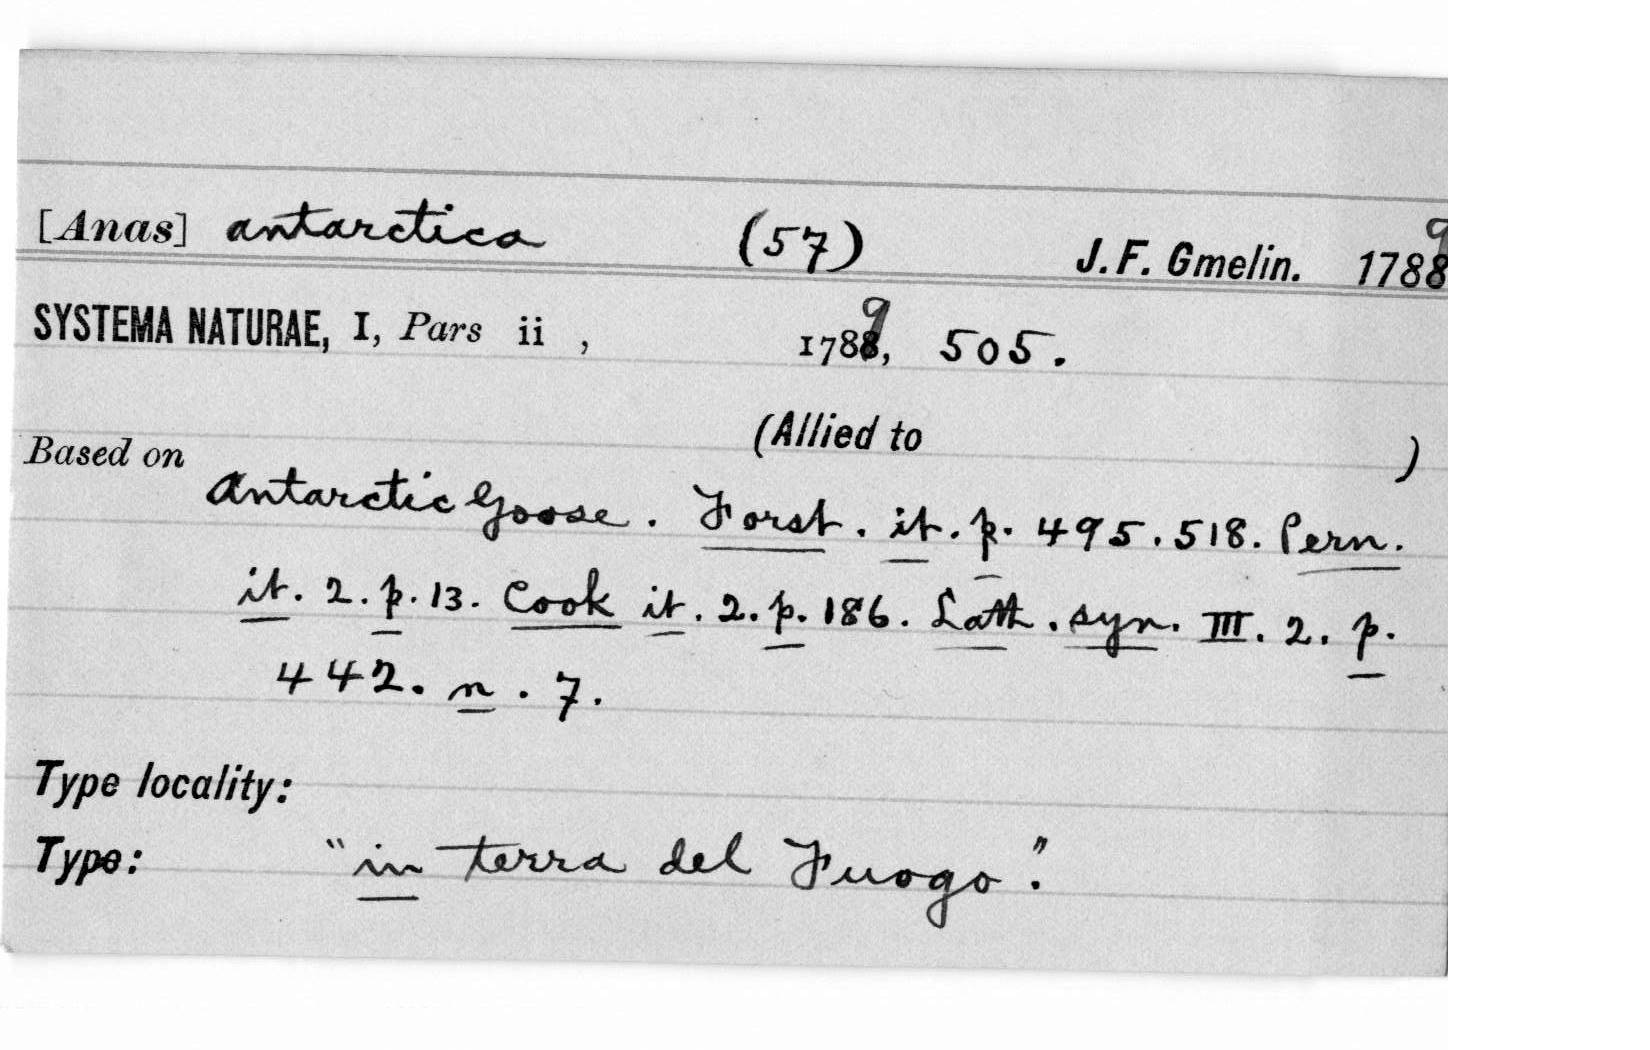 [Anas] antarctica (57) J. F. Gmelin. 1789
SYSTEMA NATURAE, I, Pars ii , 1789, 505.
(Allied to )
Based on
Antarctic Goose. Forst. it. p. 495. 518. Pern.
it. 2. p. 13. Cook it. 2. p. 186. Lath. syn. III. 2. p.
442. n. 7.
Type locality:
Type: "in terra del Fuogo".